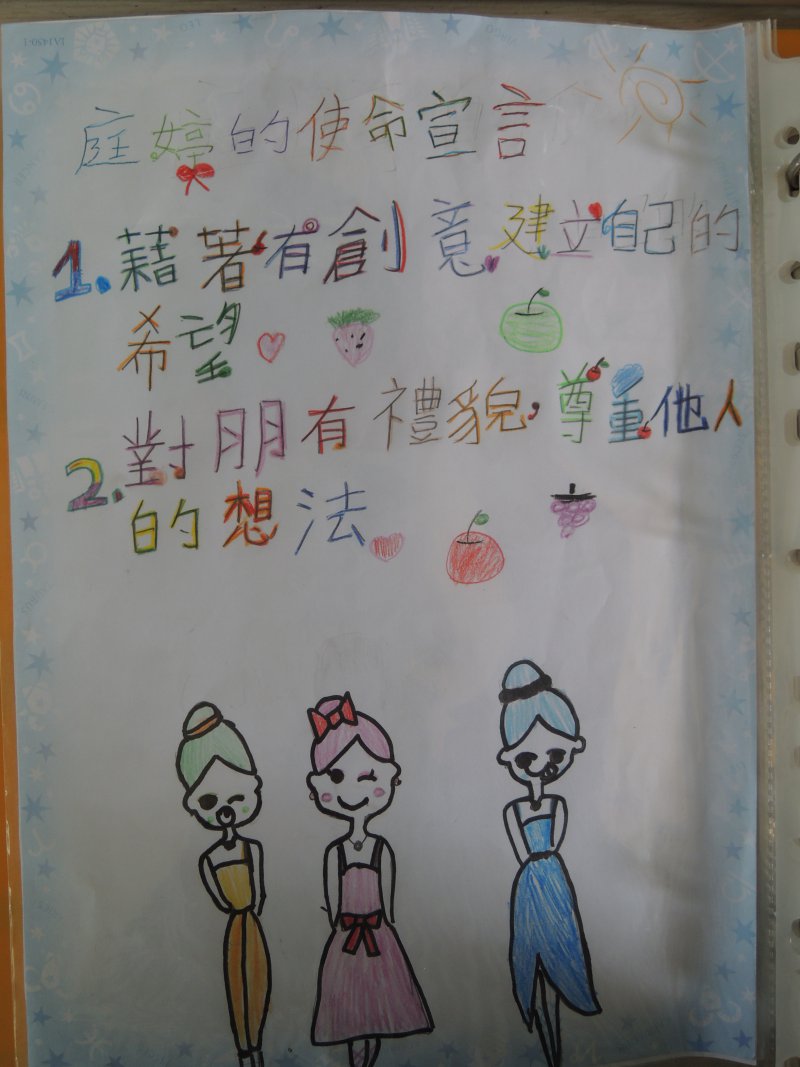 庭婷的使命宣言
1.藉著有創意建立自己的
希望
2.對朋有禮貌,尊重他人
的想法